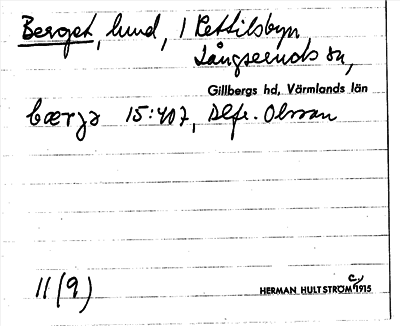 Berget, lund, 1 Kettilsbyn
Långseruds sn,
Gillbergs hd, Värmlands län
bærjə 15:407, Alfr. Olsson
11(9)
HERMAN HULTSTRÖM 1915